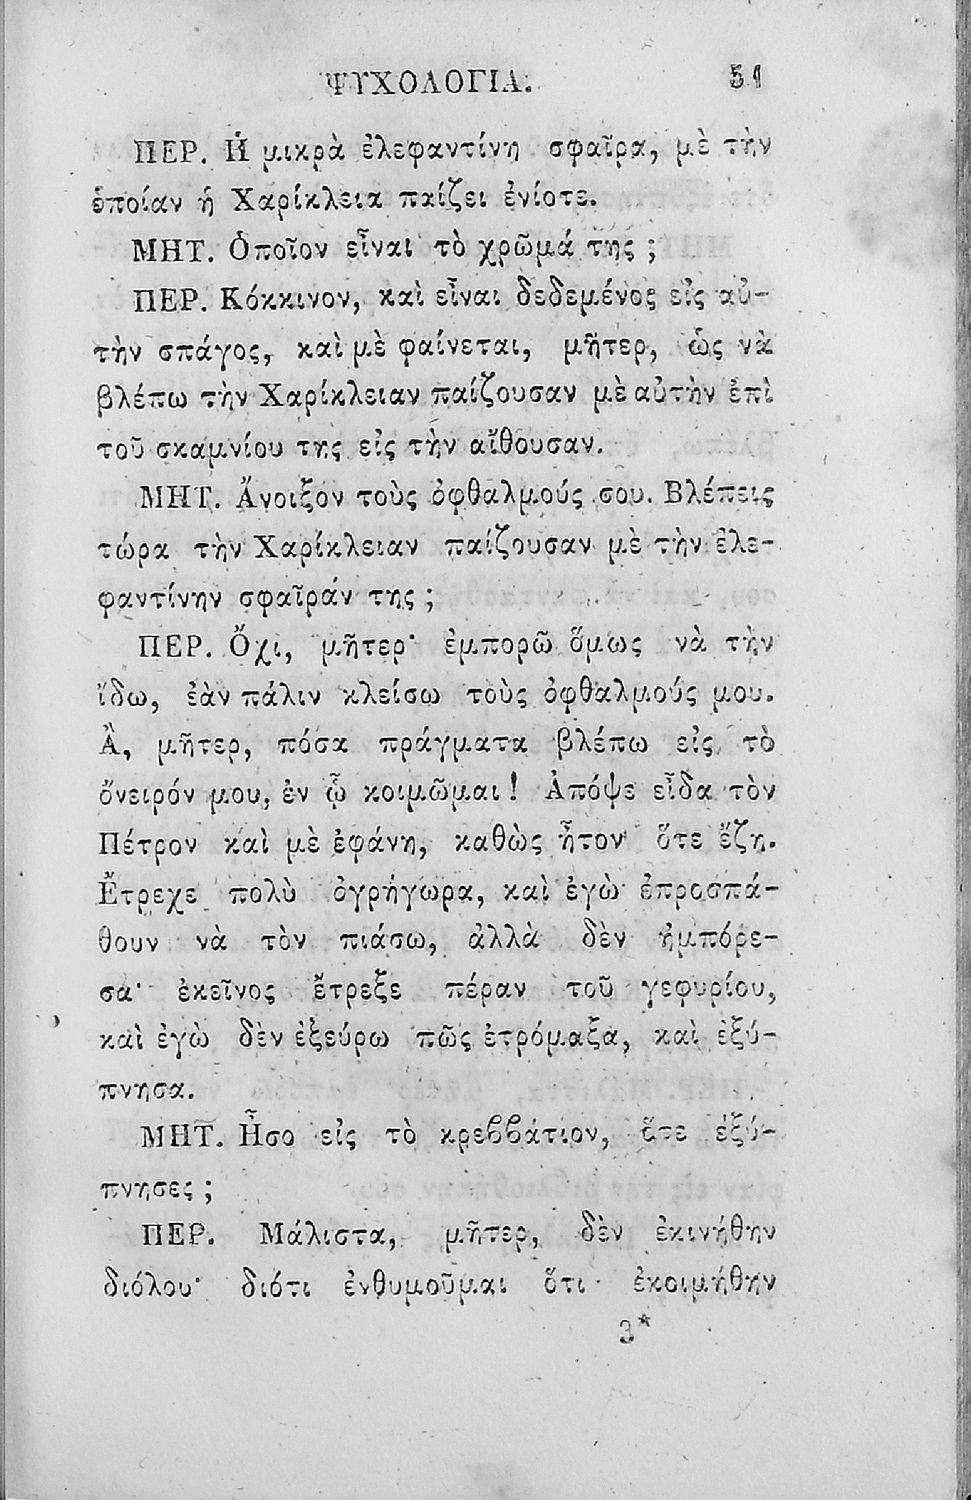 ΨΥΧΟΛΟΓΙΑ. 51
ΠΕΡ. Ἡ μικρὰ ἐλεφαντίνη σφαῖρα, μὲ τὴν
ὁποίαν ἡ Χαρίκλεια παίζει ἐνίοτε.
ΜΗΤ. Ὁποῖον εἶναι τὸ χρῶμά της ;
ΠΕΡ. Κόκκινον, καὶ εἶναι δεδεμένος εἰς αὐ-
τὴν σπάγος, καὶ μὲ φαίνεται, μῆτερ, ὡς νὰ
βλέπω τὴν Χαρίκλειαν παίζουσαν μὲ αὐτὴν ἐπὶ
τοῦ σκαμνίου της εἰς τὴν αἴθουσαν.
ΜΗΤ. Ἄνοιξον τοὺς ὀφθαλμούς σου. Βλέπεις
τώρα τὴν Χαρίκλειαν παίζουσαν μὲ τὴν ἐλε-
φαντίνην σφαῖράν της ;
ΠΕΡ. Ὄχι, μῆτερ· ἐμπορῶ ὅμως νὰ τὴν
ἴδω, ἐὰν πάλιν κλείσω τοὺς ὀφθαλμούς μου.
Ἂ, μῆτερ, πόσα πράγματα βλέπω εἰς τὸ
ὄνειρόν μου, ἐν ᾧ κοιμῶμαι ! Ἀπόψε εἶδα τὸν
Πέτρον καὶ μὲ ἐφάνη, καθὼς ἦτον ὅτε ἔζη.
Ἔτρεχε πολὺ ὀγρήγωρα, καὶ ἐγὼ ἐπροσπά-
θουν νὰ τὸν πιάσω, ἀλλὰ δὲν ἠμπόρε-
σα· ἐκεῖνος ἔτρεξε πέραν τοῦ γεφυρίου,
καὶ ἐγὼ δὲν ἐξεύρω πῶς ἐτρόμαξα, καὶ ἐξύ-
πνησα.
ΜΗΤ. Ἦσο εἰς τὸ κρεϐϐάτιον, ὅτε ἐξύ-
πνησες ;
ΠΕΡ. Μάλιστα, μῆτερ, δὲν ἐκινήθην
διόλου· διότι ἐνθυμοῦμαι ὅτι ἐκοιμήθην
3*